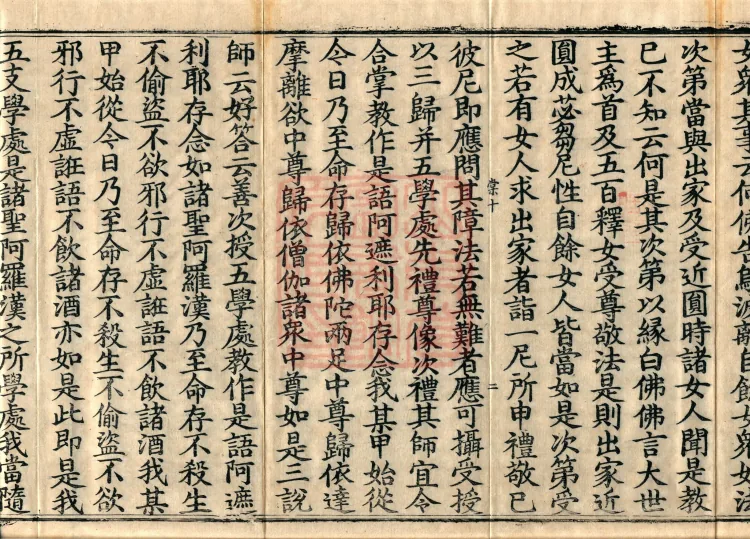 次第當與出家及受近圓時諸女人聞是教
已不知云何是其次第以緣白佛佛言大世
主為首及五百釋女受尊敬法是則出家近
圓成苾芻尼性自餘女人皆當如是次第受
之若有女人求出家者詣一尼所申禮敬已
棠十 二
彼尼即應問其障法若無難者應可攝受授
以三歸并五學處先禮尊像次禮其師宜令
合掌教作是語阿遮利耶存念我某甲始從
今日乃至命存歸依佛陀兩足中尊歸依達
摩離欲中尊歸依僧伽諸衆中尊如是三說
師云好答云善次授五學處教作是語阿遮
利耶存念如諸聖阿羅漢乃至命存不殺生
不偷盜不欲邪行不虛誑語不飲諸酒我某
甲始從今日乃至命存不殺生不偷盜不欲
邪行不虛誑語不飲諸酒亦如是此即是我
五支學處是諸聖阿羅漢之所學處我當隨